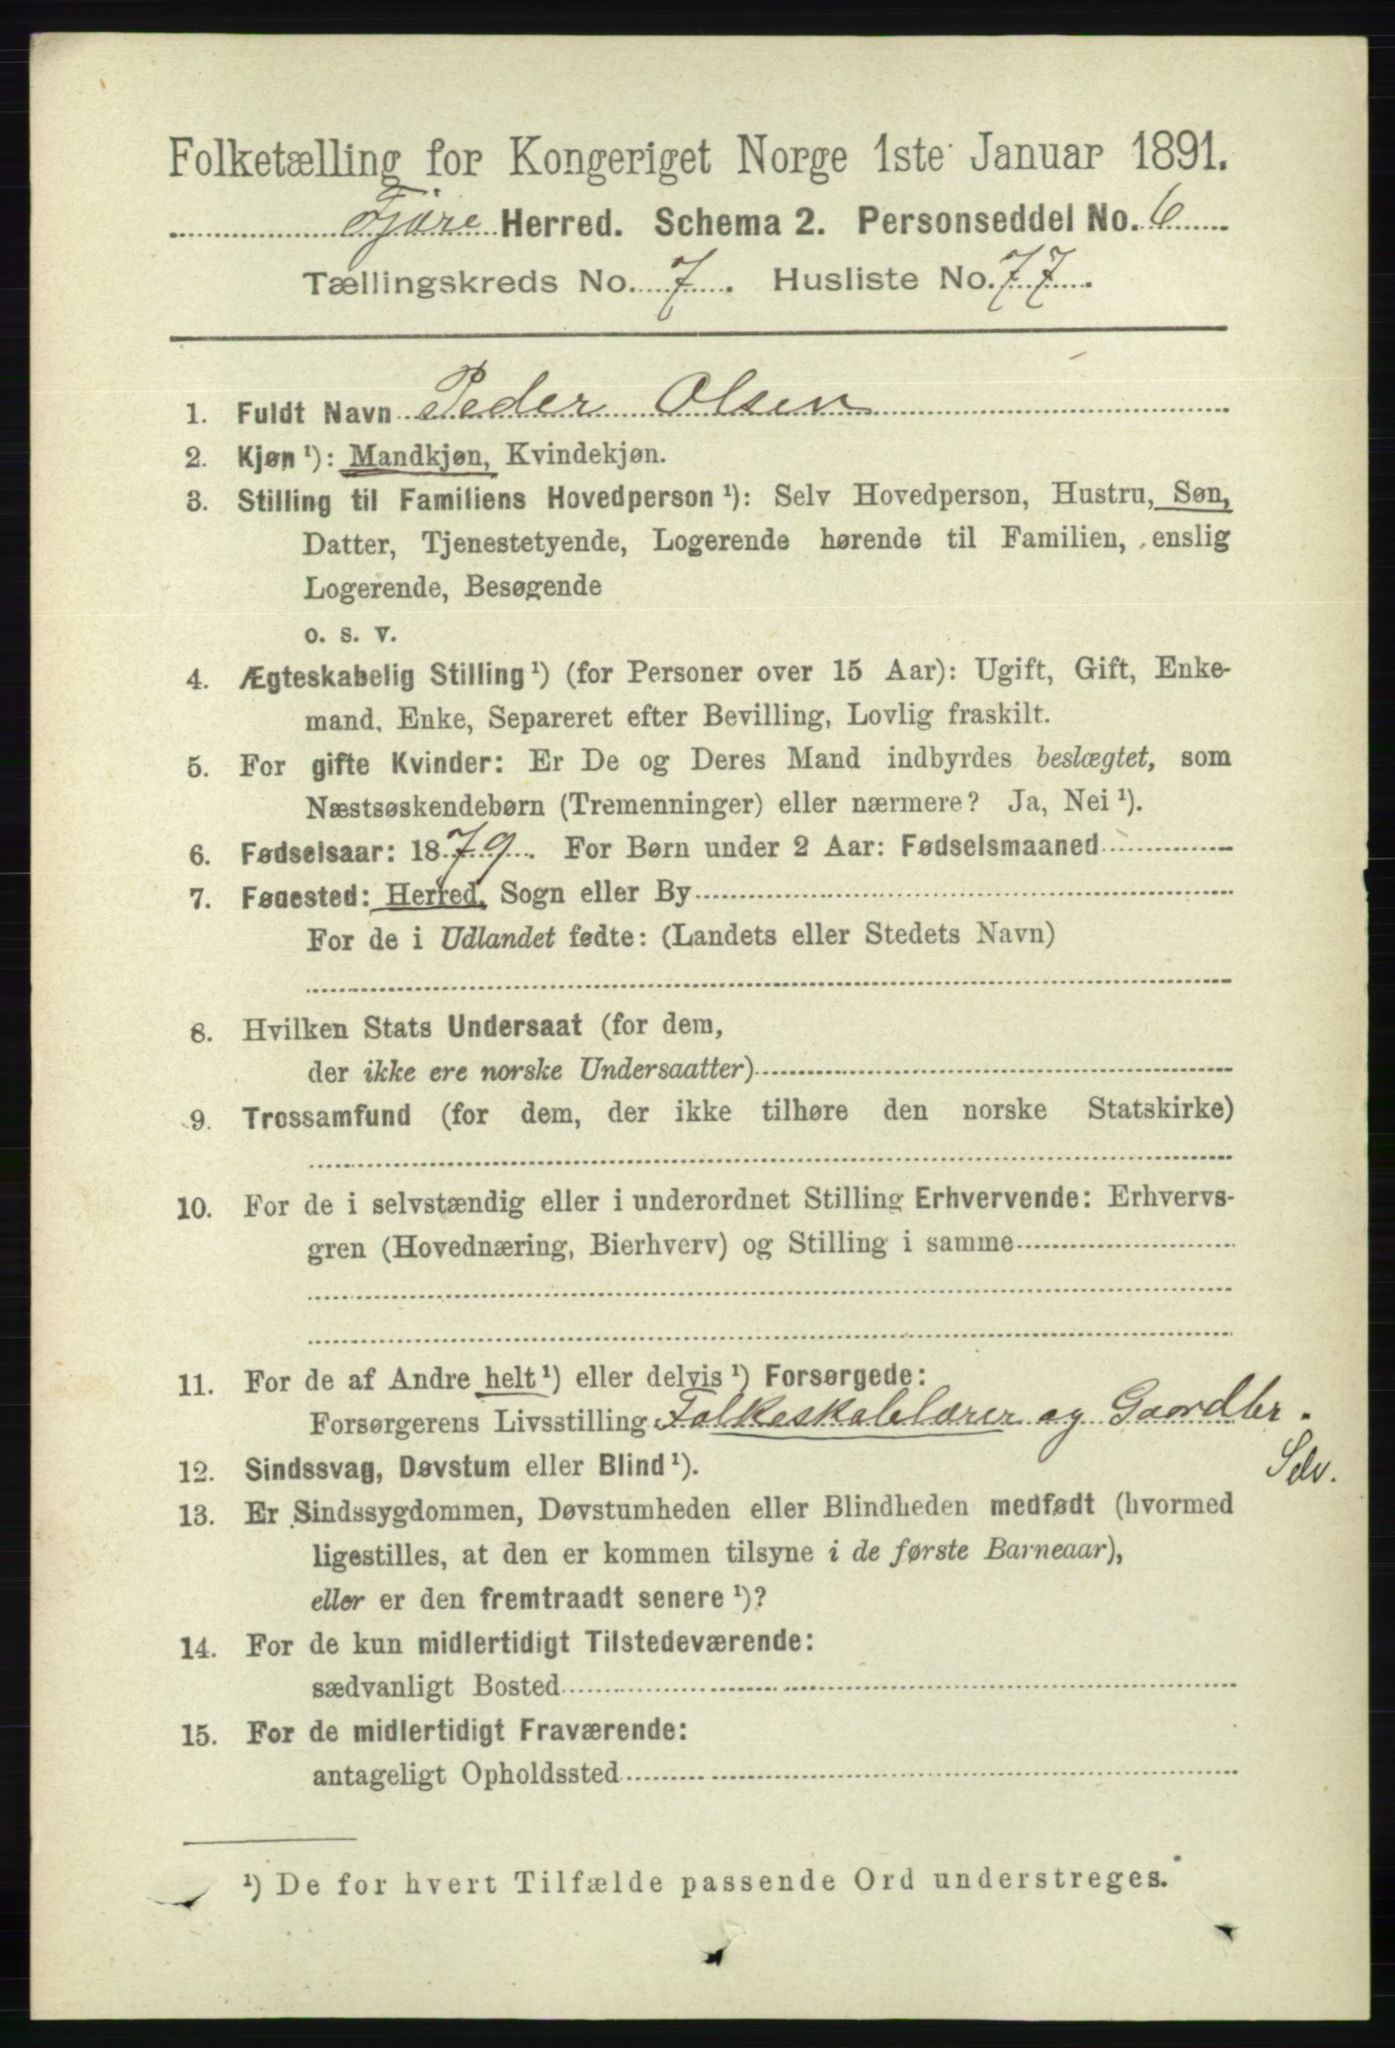 Folketælling for Kongeriget Norge 1ste Januar 1891.
Fjære Herred. Schema 2. Personseddel No. 6
Tællingskreds No. 7. Husliste No. 77.
1. Fuldt Navn Peder Olsen
2. Kjøn ¹): Mandkjøn, Kvindekjøn.
3. Stilling til Familiens Hovedperson ¹): Selv Hovedperson, Hustru, Søn,
Datter, Tjenestetyende, Logerende hørende til Familien, enslig
Logerende, Besøgende
o. s. v.
4. Ægteskabelig Stilling ¹) (for Personer over 15 Aar): Ugift, Gift, Enke-
mand, Enke, Separeret efter Bevilling, Lovlig fraskilt.
5. For gifte Kvinder: Er De og Deres Mand indbyrdes beslægtet, som
Næstsøskendebørn (Tremenninger) eller nærmere? Ja, Nei ¹).
6. Fødselsaar: 1879. For Børn under 2 Aar: Fødselsmaaned
7. Fødested: Herred, Sogn eller By
For de i Udlandet fødte: (Landets eller Stedets Navn)
8. Hvilken Stats Undersaat (for dem,
der ikke ere norske Undersaatter)
9. Trossamfund (for dem, der ikke tilhøre den norske Statskirke)
10. For de i selvstændig eller i underordnet Stilling Erhvervende: Erhvervs-
gren (Hovednæring, Bierhverv) og Stilling i samme
11. For de af Andre helt ¹) eller delvis ¹) Forsørgede:
Forsørgerens Livsstilling Folkeskolelærer og Gaardbr.
Selv.
12. Sindssvag, Døvstum eller Blind ¹).
13. Er Sindssygdommen, Døvstumheden eller Blindheden medfødt (hvormed
ligestilles, at den er kommen tilsyne i de første Barneaar),
eller er den fremtraadt senere ¹)?
14. For de kun midlertidigt Tilstedeværende:
sædvanligt Bosted
15. For de midlertidigt Fraværende:
antageligt Opholdssted
¹) De for hvert Tilfælde passende Ord understreges.